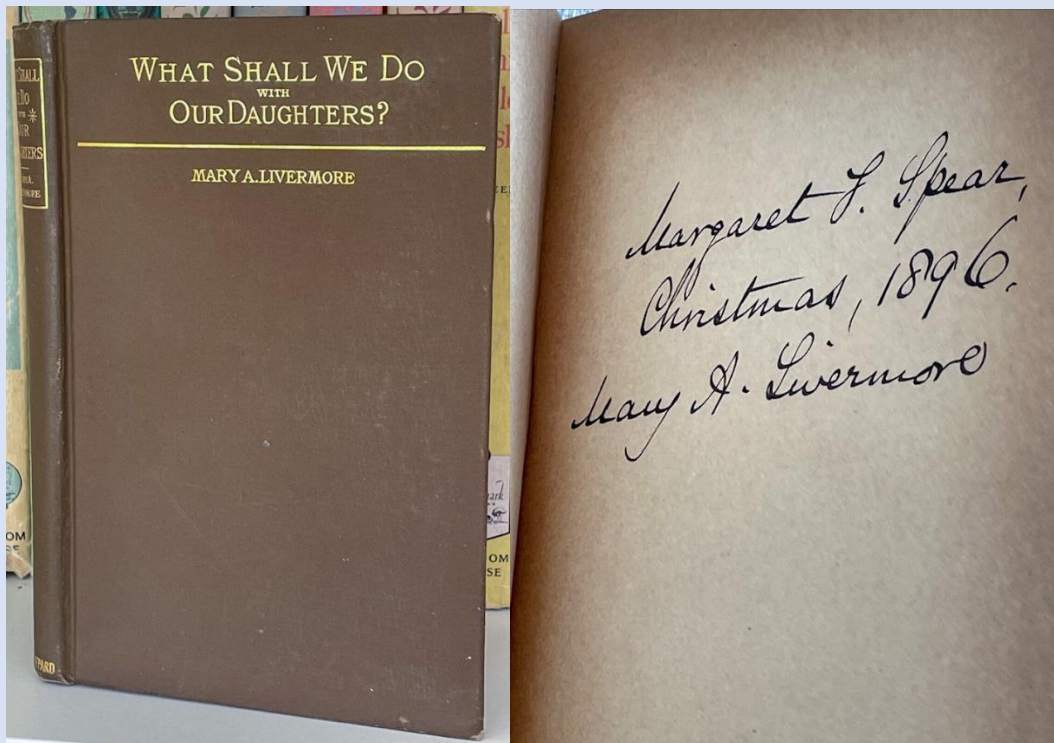 WHAT SHALL WE DO
WITH
OUR DAUGHTERS?
MARY A. LIVERMORE
Margaret F. Spear,
Christmas, 1896.
Mary A. Livermore